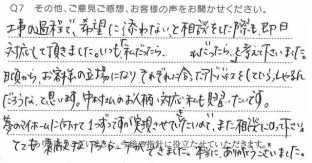 Q7 その他、ご意見ご感想、お客様の声をお聞かせください。
工事の過程で、希望に添わないと相談をした際も、即日
対応して頂きました。いつも「私だったら、 れだったら」を考えて下さいました。
日頃から、お客様の立場になりそれぞれに合ったアドバイスをしていらっしゃるん
だろうな、と思います。中村さんのお人柄・対応 見習いたいです。
夢のマイホームに向けて1つずつ 実現させて いので、また相談にのって下さい。
とても 今後の指針に役立たせていただきます。 できました。本当に、ありがとうございました。